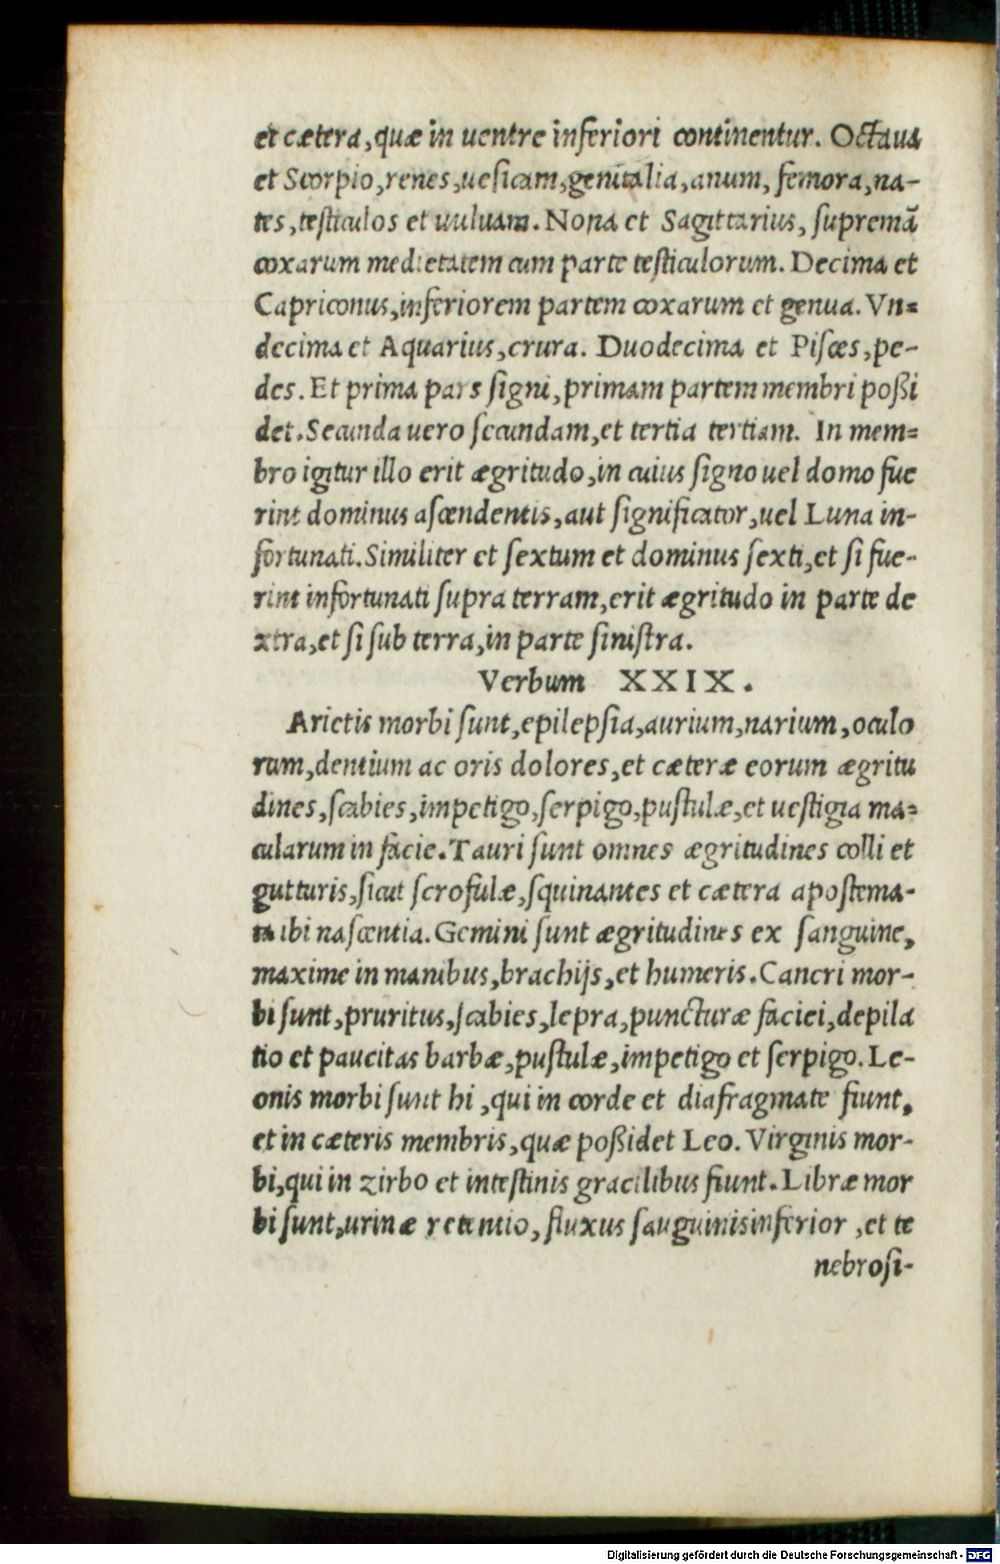 et cætera, quæ in uentre inferiori continentur. Octaua
et Scorpio, renes, uesicam, genitalia, anum, femora, na-
tes, testiculos et uuluam. Nona et Sagittarius, supremā
coxarum medietatem cum parte testiculorum. Decima et
Capriconus, inferiorem partem coxarum et genua. Vn=
decima et Aquarius, crura. Duodecima et Pisces, pe-
des. Et prima pars signi, primam partem membri poßi
det. Secunda uero secundam, et tertia tertiam. In mem=
bro igitur illo erit ægritudo, in cuius signo uel domo fue
rint dominus ascendentis, aut significator, uel Luna in-
fortunati. Similiter et sextum et dominus sexti, et si fue-
rint infortunati supra terram, erit ægritudo in parte de
xtra, et si sub terra, in parte sinistra.
Verbum XXIX.
Arietis morbi sunt, epilepsia, aurium, narium, oculo
rum, dentium ac oris dolores, et cæteræ eorum ægritu
dines, scabies, impetigo, serpigo, pustulæ, et uestigia ma=
cularum in facie. Tauri sunt omnes ægritudines colli et
gutturis, sicut scrofulæ, squinantes et cætera apostema-
ta ibi nascentia. Gemini sunt ægritudines ex sanguine,
maxime in manibus, brachijs, et humeris. Cancri mor-
bi sunt, pruritus, scabies, lepra, puncturæ faciei, depila
tio et paucitas barbæ, pustulæ, impetigo et serpigo. Le-
onis morbi sunt hi, qui in corde et diafragmate fiunt,
et in cæteris membris, quæ poßidet Leo. Virginis mor-
bi, qui in zirbo et intestinis gracilibus fiunt. Libræ mor
bi sunt, urinæ retentio, fluxus sauguinis inferior, et te
nebrosi-
Digitalisierung gefördert durch die Deutsche Forschungsgemeinschaft - DFG